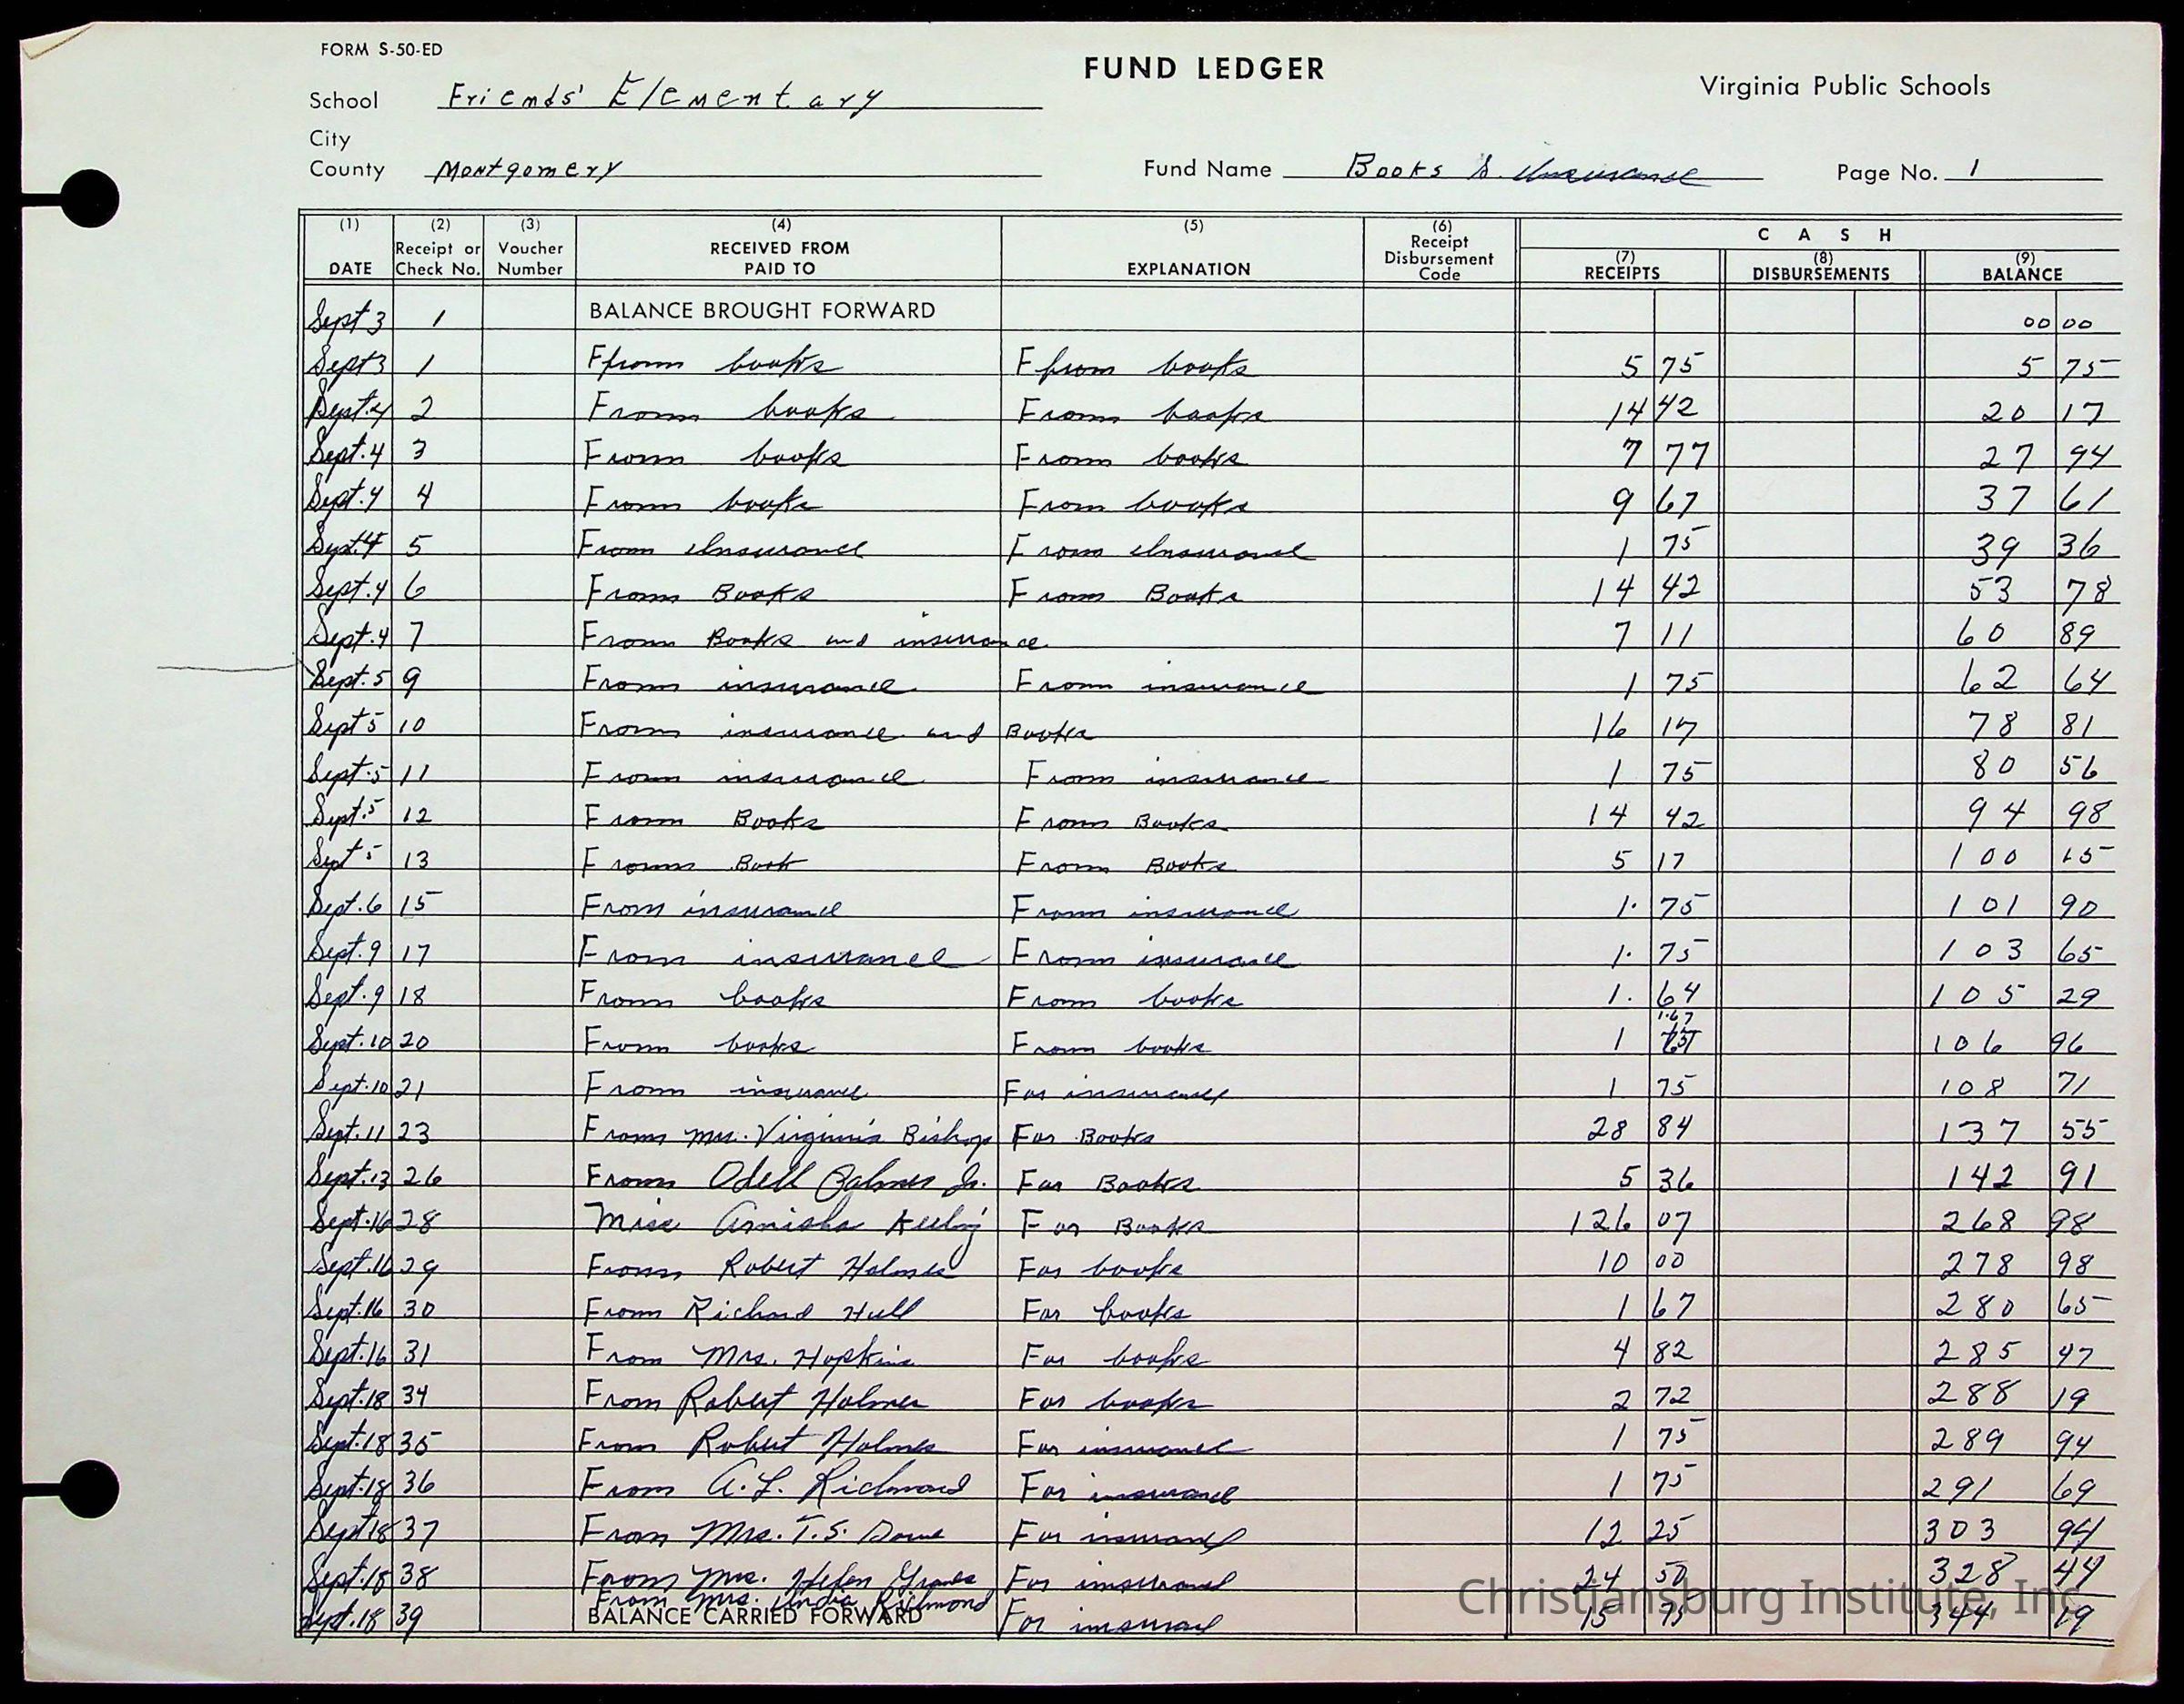 FORM S-50-ED
FUND LEDGER
Virginia Public Schools
School Friends' Elementary
City
County Montgomery
Fund Name Books & Insurance
Page No. 1
(1) DATE (2) Receipt or Check No. (3) Voucher Number (4) RECEIVED FROM PAID TO (5) EXPLANATION (6) Receipt Disbursement Code CASH (7) RECEIPTS (8) DISBURSEMENTS (9) BALANCE
Sept 3 1 BALANCE BROUGHT FORWARD 00 00
Sept 3 1 Ffrom books Ffrom books 5 75 5 75
Sept. 4 2 From books From books 14 42 20 17
Sept. 4 3 From books From books 7 77 27 94
Sept. 4 4 From books From books 9 67 37 61
Sept. 4 5 From Insurance From Insurance 1 75 39 36
Sept. 4 6 From Books From Books 14 42 53 78
Sept. 4 7 From Books and insurance 7 11 60 89
Sept. 5 9 From insurance From insurance 1 75 62 64
Sept 5 10 From insurance and Books 16 17 78 81
Sept. 5 11 From insurance From insurance 1 75 80 56
Sept. 5 12 From Books From Books 14 42 94 98
Sept 5 13 From Book From Books 5 17 100 15
Sept. 6 15 From insurance From insurance 1. 75 101 90
Sept. 9 17 From insurance From insurance 1. 75 103 65
Sept. 9 18 From books From books 1. 64 105 29
Sept. 10 20 From books From books 1 1.67 106 96
Sept. 10 21 From insurance For insurance 1 75 108 71
Sept. 11 23 From Mrs. Virginia Bishop For Books 28 84 137 55
Sept. 13 26 From Odell Palmer Jr. For Books 5 36 142 91
Sept. 16 28 Miss Amisha Keeling For Books 126 07 268 98
Sept. 16 29 From Robert Holmes For books 10 00 278 98
Sept. 16 30 From Richard Hull For books 1 67 280 65
Sept. 16 31 From Mrs. Hopkins For books 4 82 285 47
Sept. 18 34 From Robert Holmes For books 2 72 288 19
Sept. 18 35 From Robert Holmes For insurance 1 75 289 94
Sept. 18 36 From A. L. Richmond For insurance 1 75 291 69
Sept 18 37 From Mrs. T. S. For insurance 12 25 303 94
Sept. 18 38 From Mrs. Helen Graves For insurance 24 50 328 44
Sept. 18 39 From Mrs. India Richmond For insurance 15 75 344 19
BALANCE CARRIED FORWARD
Christiansburg Institute, Inc.